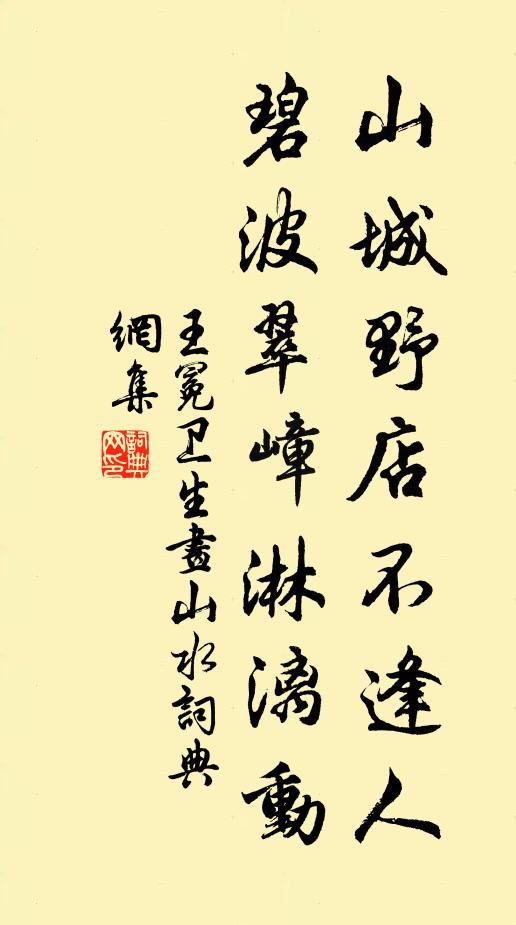 山城野店不逢人
碧波翠嶂淋漓動
王冕卫生畫山水詞典
網集
詞典網印